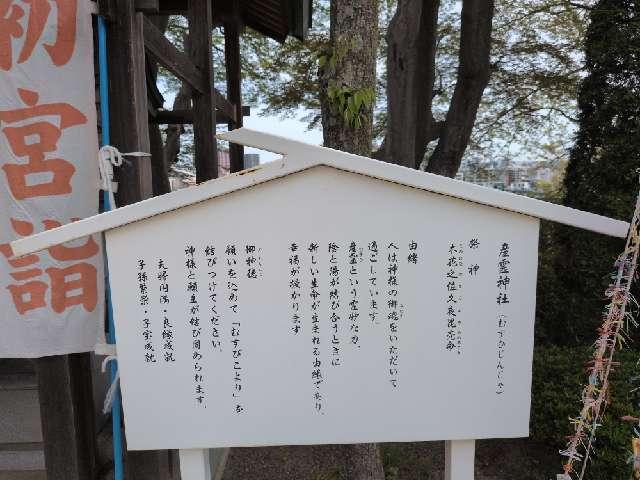 産霊神社（むすひじんじゃ）
祭神
木花之佐久夜毘売命
由緒
人は神様の御魂をいただいて
過ごしています。
産霊という霊妙な力、
陰と陽が結び合うときに
新しい生命が生まれる由縁であり、
幸福が授かります
御神徳
願いを込めて「むすびこより」を
結びつけてください。
神様と願主が結び固められます。
夫婦円満・良縁成就
子孫繁栄・子宝成就
初宮詣